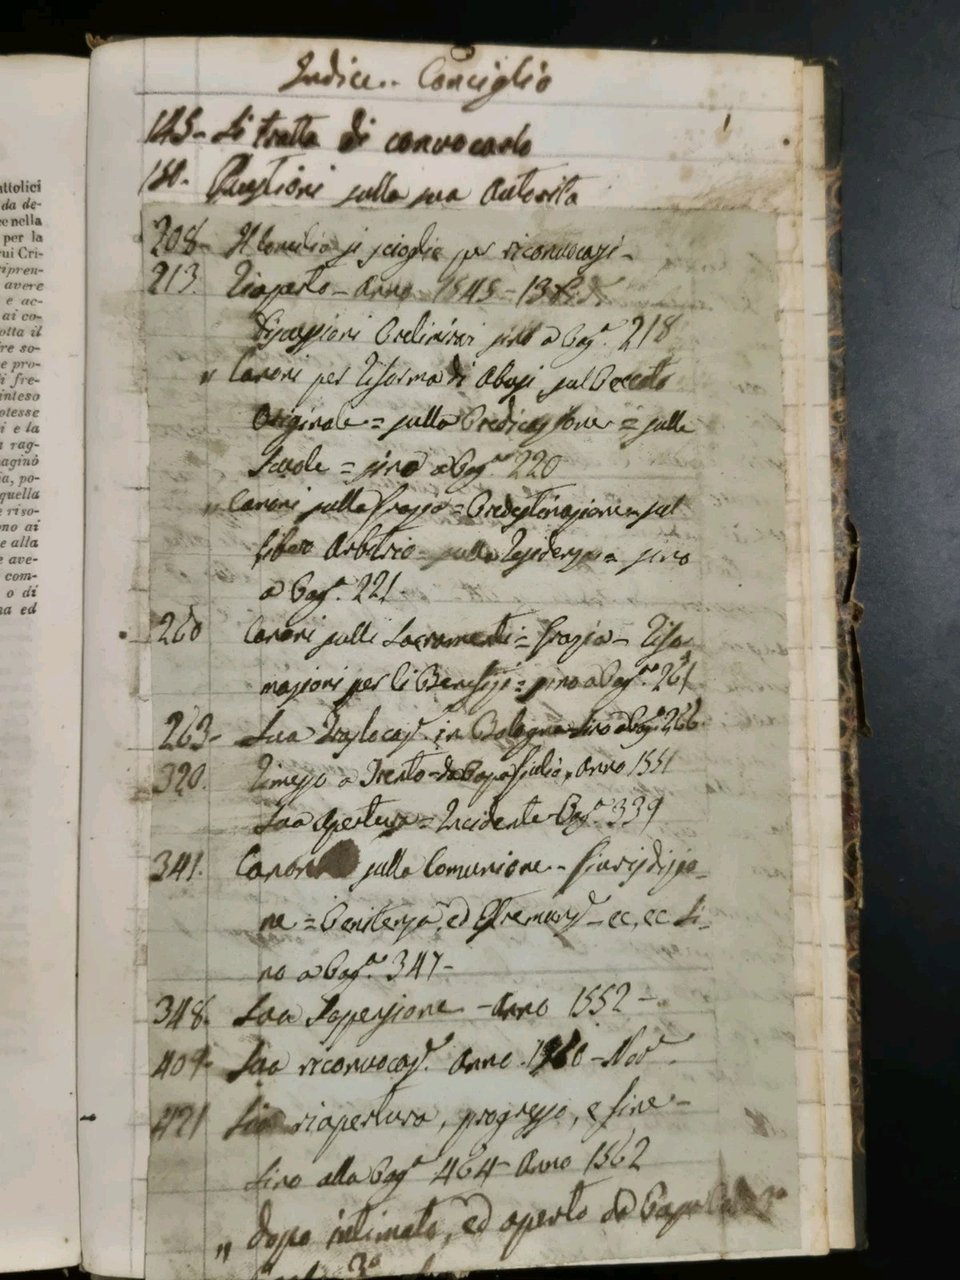 attolici
da de-
ce nella
per la
rui Cri-
ripren-
avere
e ac-
ai co-
otta il
re so-
e pro-
li fre-
inteso
otesse
i e la
rag-
aginò
a, po-
quella
e riso-
ono ai
e alla
e ave-
com-
o di
na ed
Indice.. Conciglio
145- Si tratta di convocarlo
180. Questioni sulla sua Autorita
208- Il Concilio si scioglie per riconvocarsi-
213. Riaperto - Anno 1545 - 13
Discussioni Preliminari sino a Pag.ª 218
" Canoni per Riforma di Abusi sul Peccato
Originale = sulla Predicazione = sulle
Scuole = sino a Pag.ª 220
" Canoni sulla Grazia = Predestinazione = sul
libero Arbitrio = sulla Residenza = sino
a Pag.ª 221-
260 Canoni sulli Sacramenti = Grazia - Rifor
mazioni per li Benefizj = sino a Pag.ª 261
263- Sua Traslocaz.e in Bologna sino a Pag.ª 266
320. Rimesso a Trento da Papa Giulio, Anno 1551
Sua Apertura = Incidente Pag.ª 339
341. Canoni sulla Comunione - Giurisdizio-
ne = Penitenza, ed Estremunz.e - ec, ec Si-
no a Pag.ª 347-
348. Sua Sospensione - Anno 1552 -
409- Sua riconvocaz.e Anno 1560 - Nov.e
421 Sua riapertura, progresso, e fine -
Sino alla Pag.ª 464 - Anno 1562
" dopo intimato, ed aperto da Papa